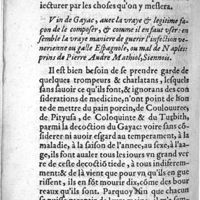 iecturer par les choses qu'on y meslera.
Vin de Gayac, auec la vraye & legitime fa-
çon de le composer, & comme il en faut vser: en
semble la vraye maniere de guerir l'infection ve-
nerienne ou galle Espagnole, ou mal de Naples:
prins de Pierre Andre Mathiol, Siennois.
Il est bien besoin de se prendre garde de
quelques trompeurs & charlatans, lesquels
sans sauoir ce qu'ils font, & ignorans des con
siderations de medicine, n'ont point de hon
te de mettre du pain porcin, de Couloures,
de Pityusa, de Coloquinte & du Turbith,
parmi la decoction du Gayac: voire sans con
siderer ni auoir esgard au temperament, à la
maladie, à la saison de l'annee, au sexe, à l'aa-
ge, ils font aualer tous les iours vn grand ver
re de ceste decoction tiede, à tous indifferem-
ment: & de là vient que pour vn, qu'ils en gue
rissent, ils en font mourir dix, côme des bour
reaux qu'ils sont. Parquoy